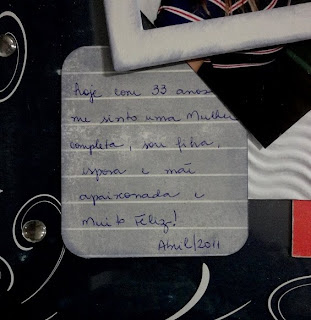 hoje com 33 anos
me sinto uma Mulher
completa, sou filha,
esposa e mãe
apaixonada e
Muito Feliz!
Abril/2011